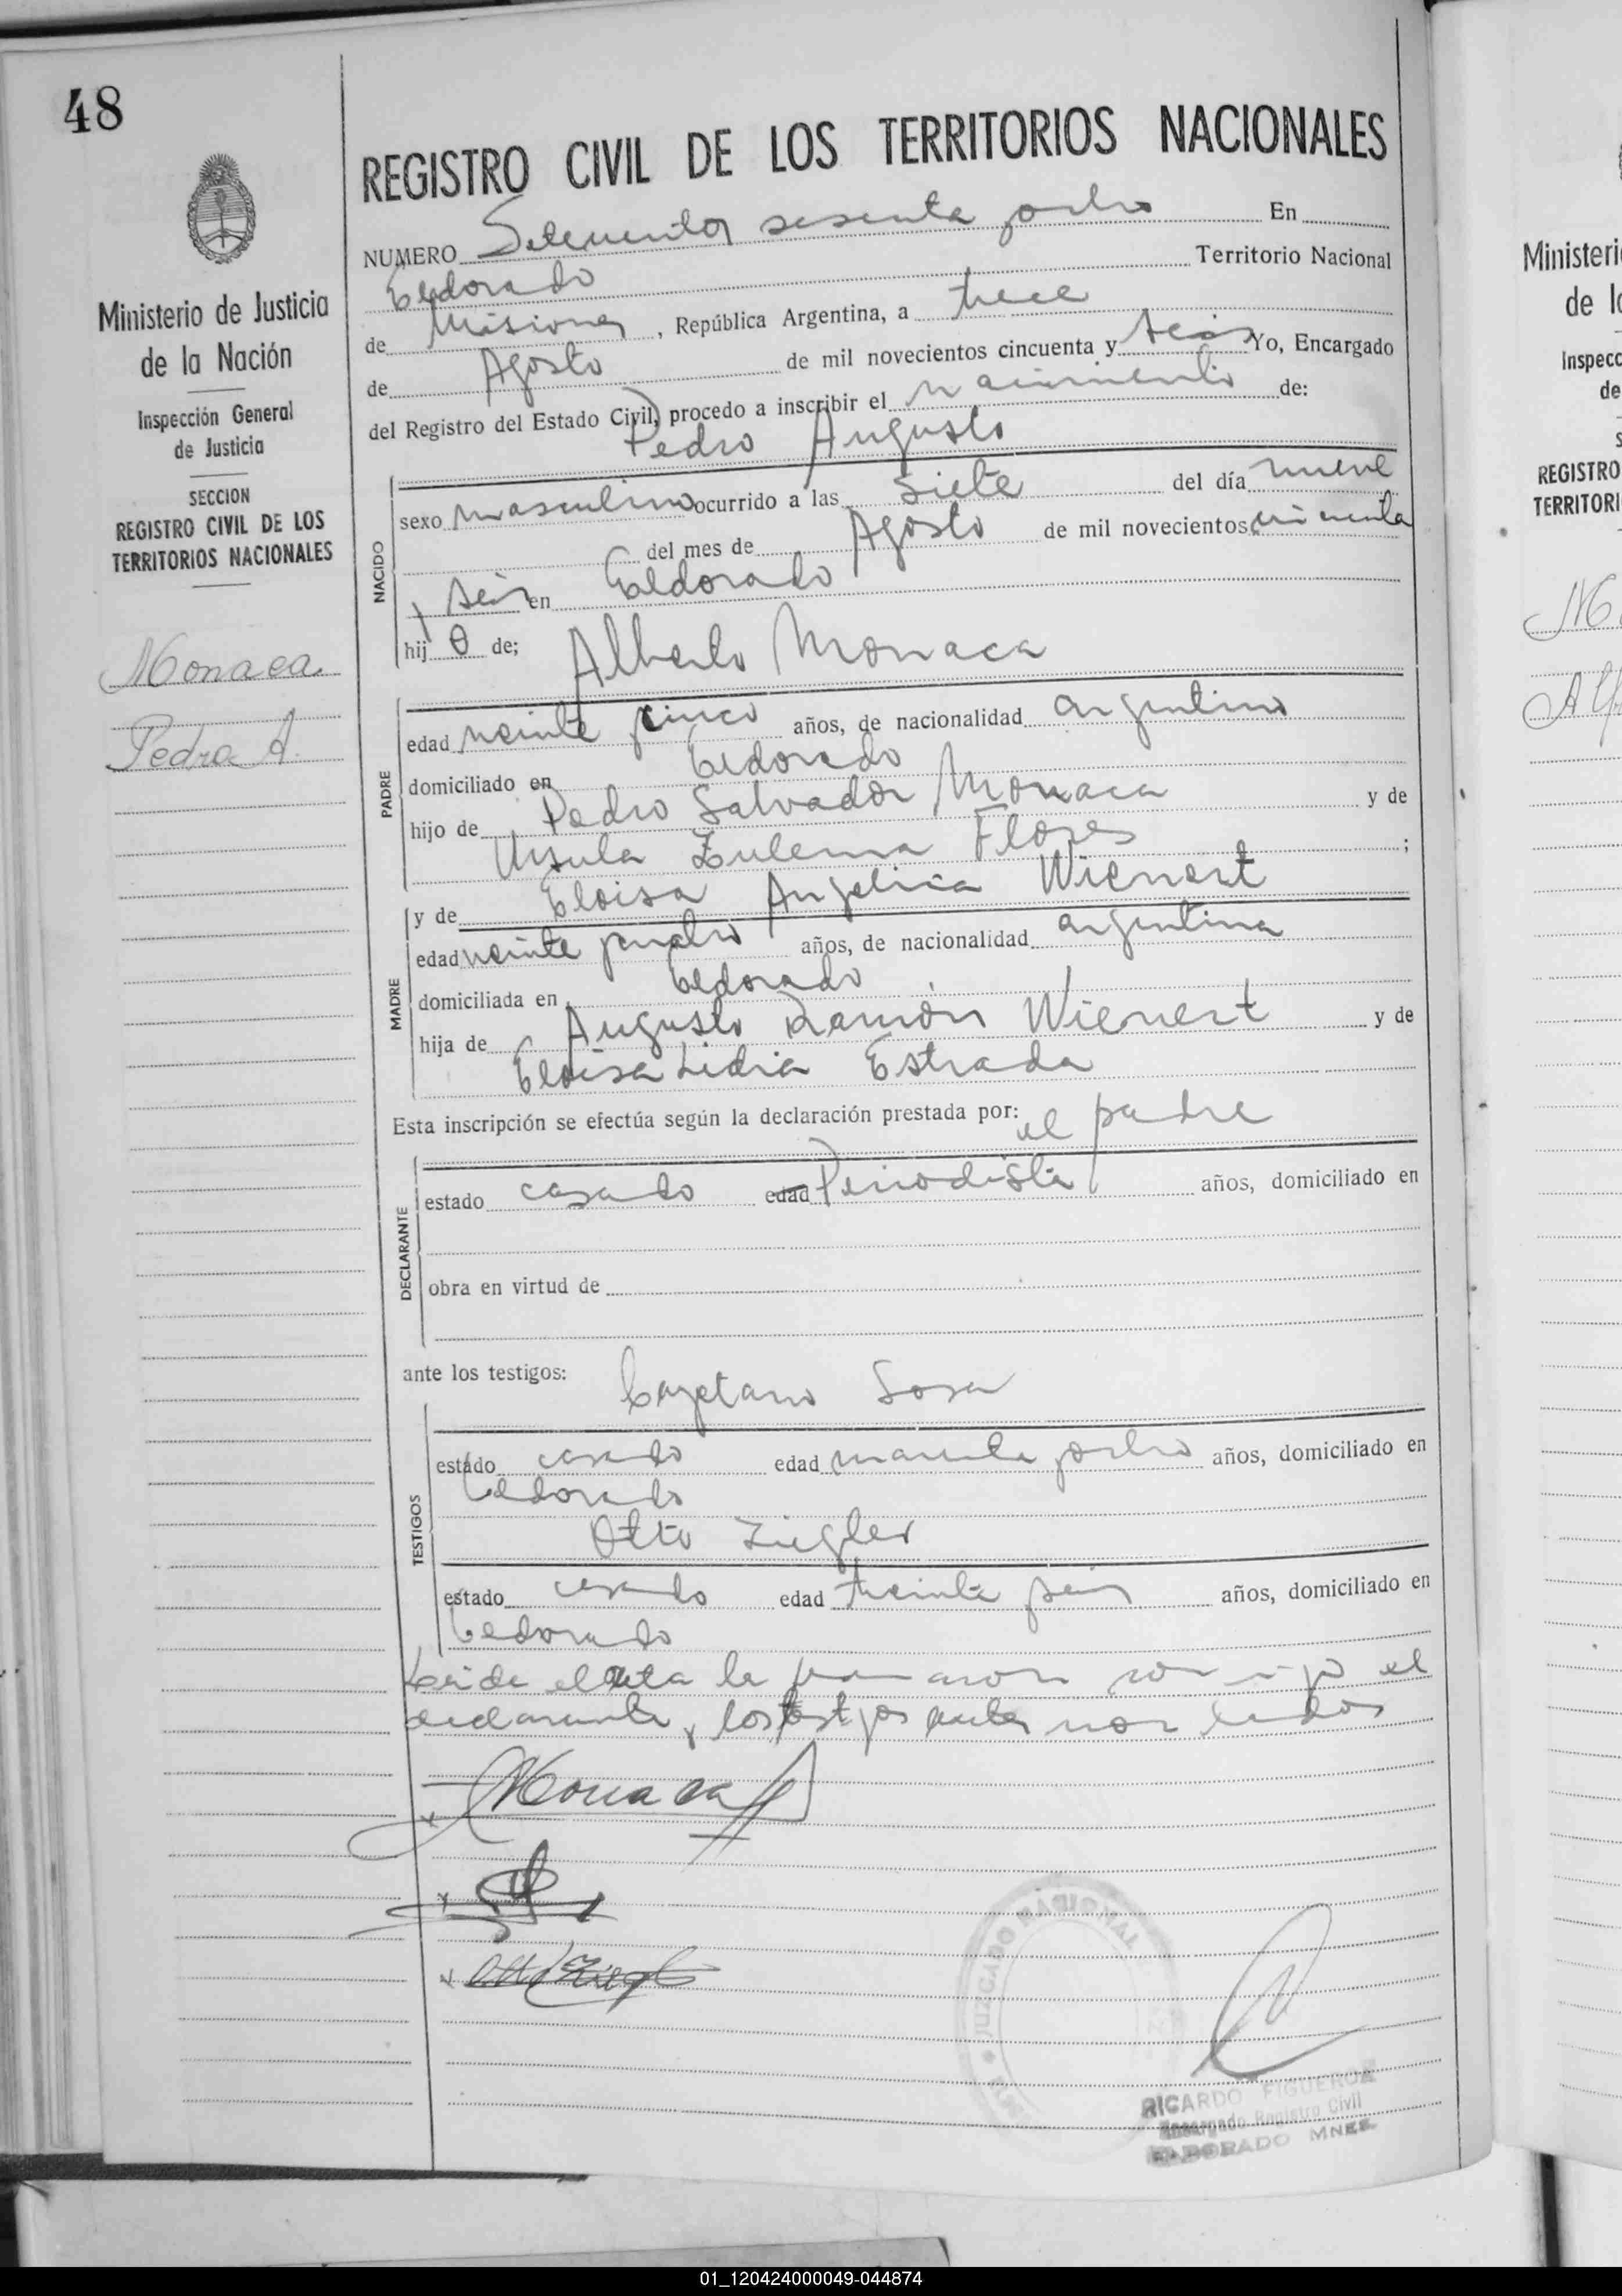 48
Ministerio de Justicia
de la Nación
Inspección General
de Justicia
SECCION
REGISTRO CIVIL DE LOS
TERRITORIOS NACIONALES
Monaca
Pedro A.
REGISTRO CIVIL DE LOS TERRITORIOS NACIONALES
NUMERO Setecientos sesenta y ocho En
Eldorado Territorio Nacional
de Misiones, República Argentina, a trece
de Agosto de mil novecientos cincuenta y seis Yo, Encargado
del Registro del Estado Civil, procedo a inscribir el nacimiento de:
Pedro Augusto
NACIDO
sexo masculino ocurrido a las siete del día nueve
del mes de Agosto de mil novecientos cincuenta
y seis en Eldorado
hijo de; Alberto Monaca
PADRE
edad veinte y cinco años, de nacionalidad argentino
domiciliado en Eldorado
hijo de Pedro Salvador Monaca y de
Ursula Zulema Flores ;
y de Eloisa Angelica Wienert
MADRE
edad veinte y cuatro años, de nacionalidad argentina
domiciliada en Eldorado
hija de Augusto Ramón Wienert y de
Eloisa Lidia Estrada
Esta inscripción se efectúa según la declaración prestada por: el padre
DECLARANTE
estado casado edad Periodista años, domiciliado en
obra en virtud de
ante los testigos: Cayetano Sosa
TESTIGOS
estado casado edad cuarenta y ocho años, domiciliado en
Eldorado
Otto Ziegler
estado casado edad treinta y seis años, domiciliado en
Eldorado
Leida el acta la firmaron conmigo el
declarante y los testigos antes nombrados
Monaca
JUZGADO
RICARDO FIGUEROA
Encargado Registro Civil
ELDORADO MNES.
Ministeri
de l
Inspecc
de
REGISTRO
TERRITORI
01_120424000049-044874